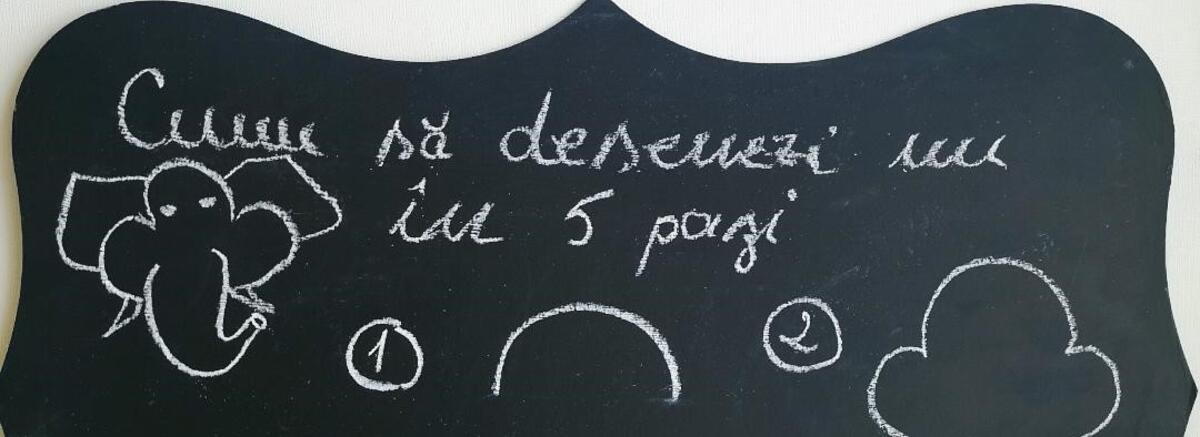 Cum să desenezi un
în 5 pași
1
2